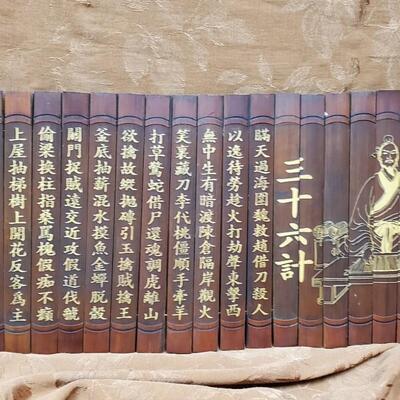 三十六計
瞞天過海圍魏救趙借刀殺人
以逸待勞趁火打劫聲東擊西
無中生有暗渡陳倉隔岸觀火
笑裏藏刀李代桃僵順手牽羊
打草驚蛇借尸還魂調虎離山
欲擒故縱拋磚引玉擒賊擒王
釜底抽薪混水摸魚金蟬脫殼
關門捉賊遠交近攻假道伐虢
偷梁換柱指桑罵槐假痴不癲
上屋抽梯樹上開花反客為主